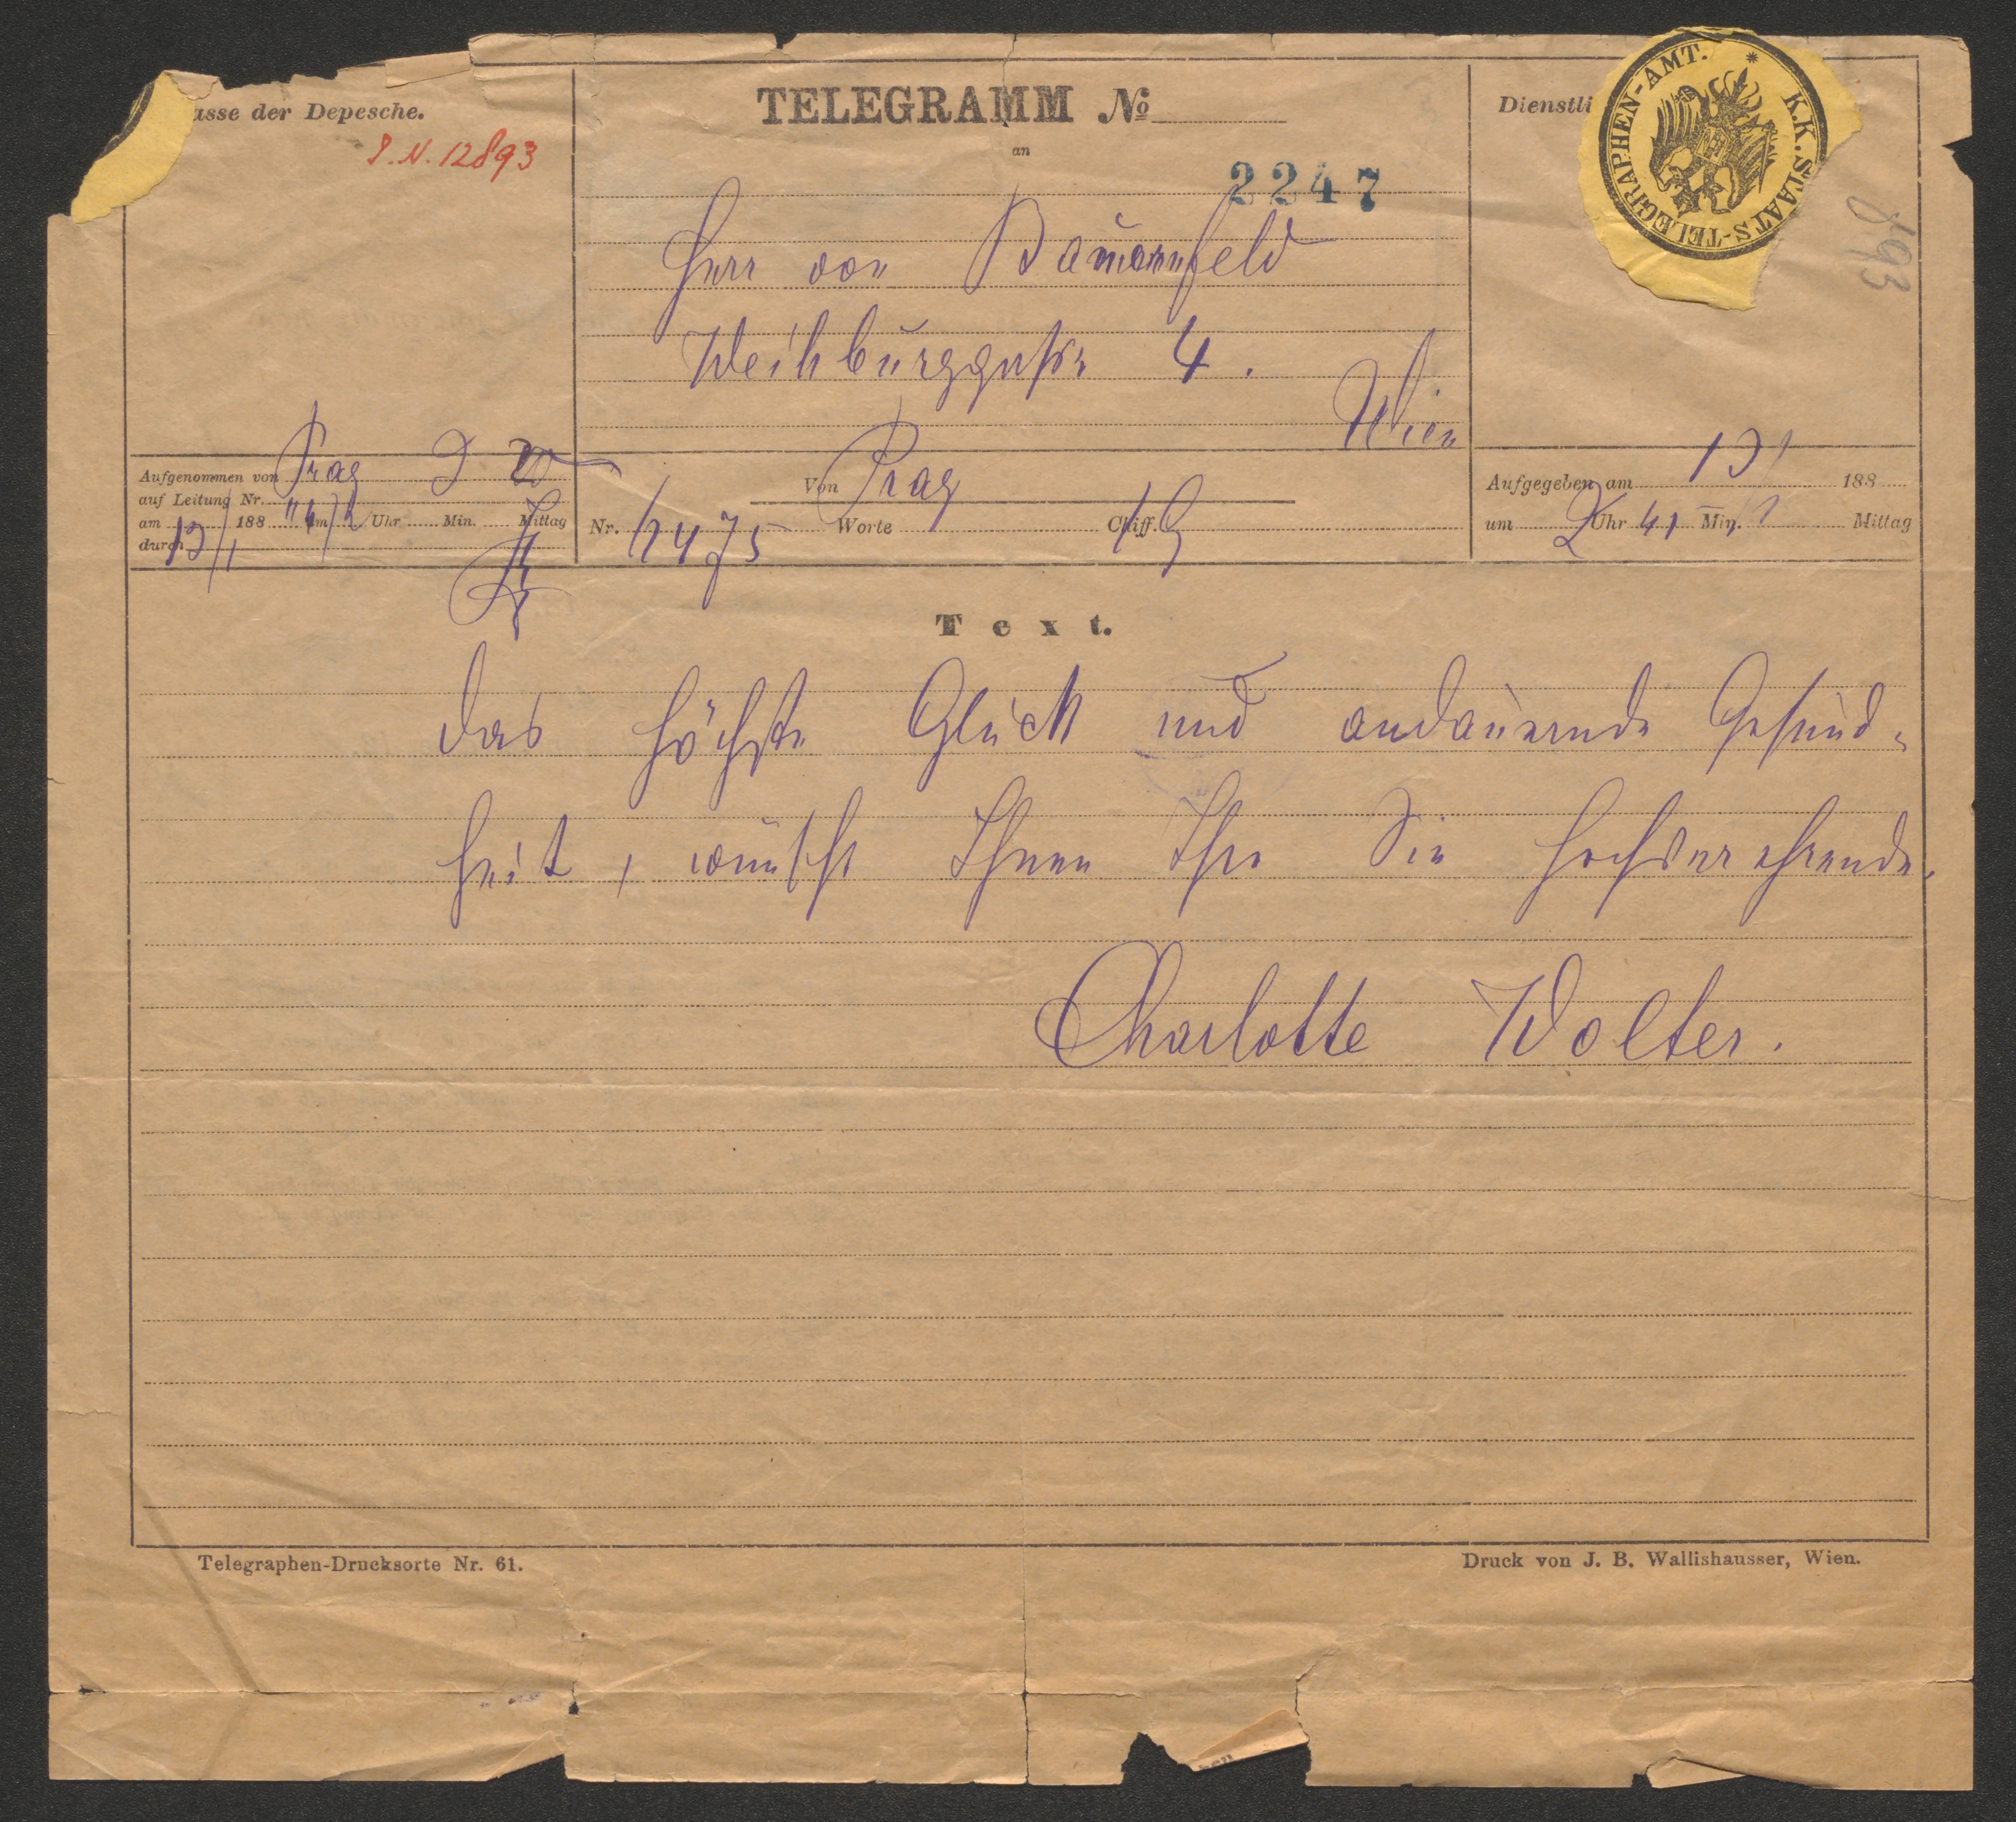 asse der Depesche.
I.N. 12893
TELEGRAMM No
an
2247
Herr von Bauernfeld
Weihburggasse 4.
Wien
Dienstli
K.K. STAATS-TELEGRAPHEN-AMT.
893
Aufgenommen von Prag
auf Leitung Nr.
am 13/1 188 um Uhr Min. Mittag
durch
Von Prag
Nr. 12475 Worte Chiff.
Aufgegeben am 13/1 188
um 2 Uhr 41 Min. Mittag
Text.
Das höchste Glück und andauernde Gesund-
heit, wünscht Ihnen Ihre Sie hochverehrende
Charlotte Wolter.
Telegraphen-Drucksorte Nr. 61.
Druck von J. B. Wallishausser, Wien.